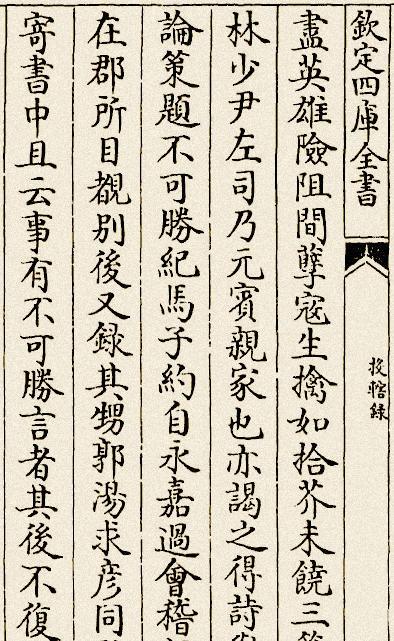 欽定四庫全書
投轄録
盡英雄險阻間孽宼生擒如拾芥未饒三
林少尹左司乃元賓親家也亦謁之得詩
論策題不可勝紀馬子約自永嘉過會稽
在郡所目覩别後又録其甥郭湯求彦同
寄書中且云事有不可勝言者其後不復